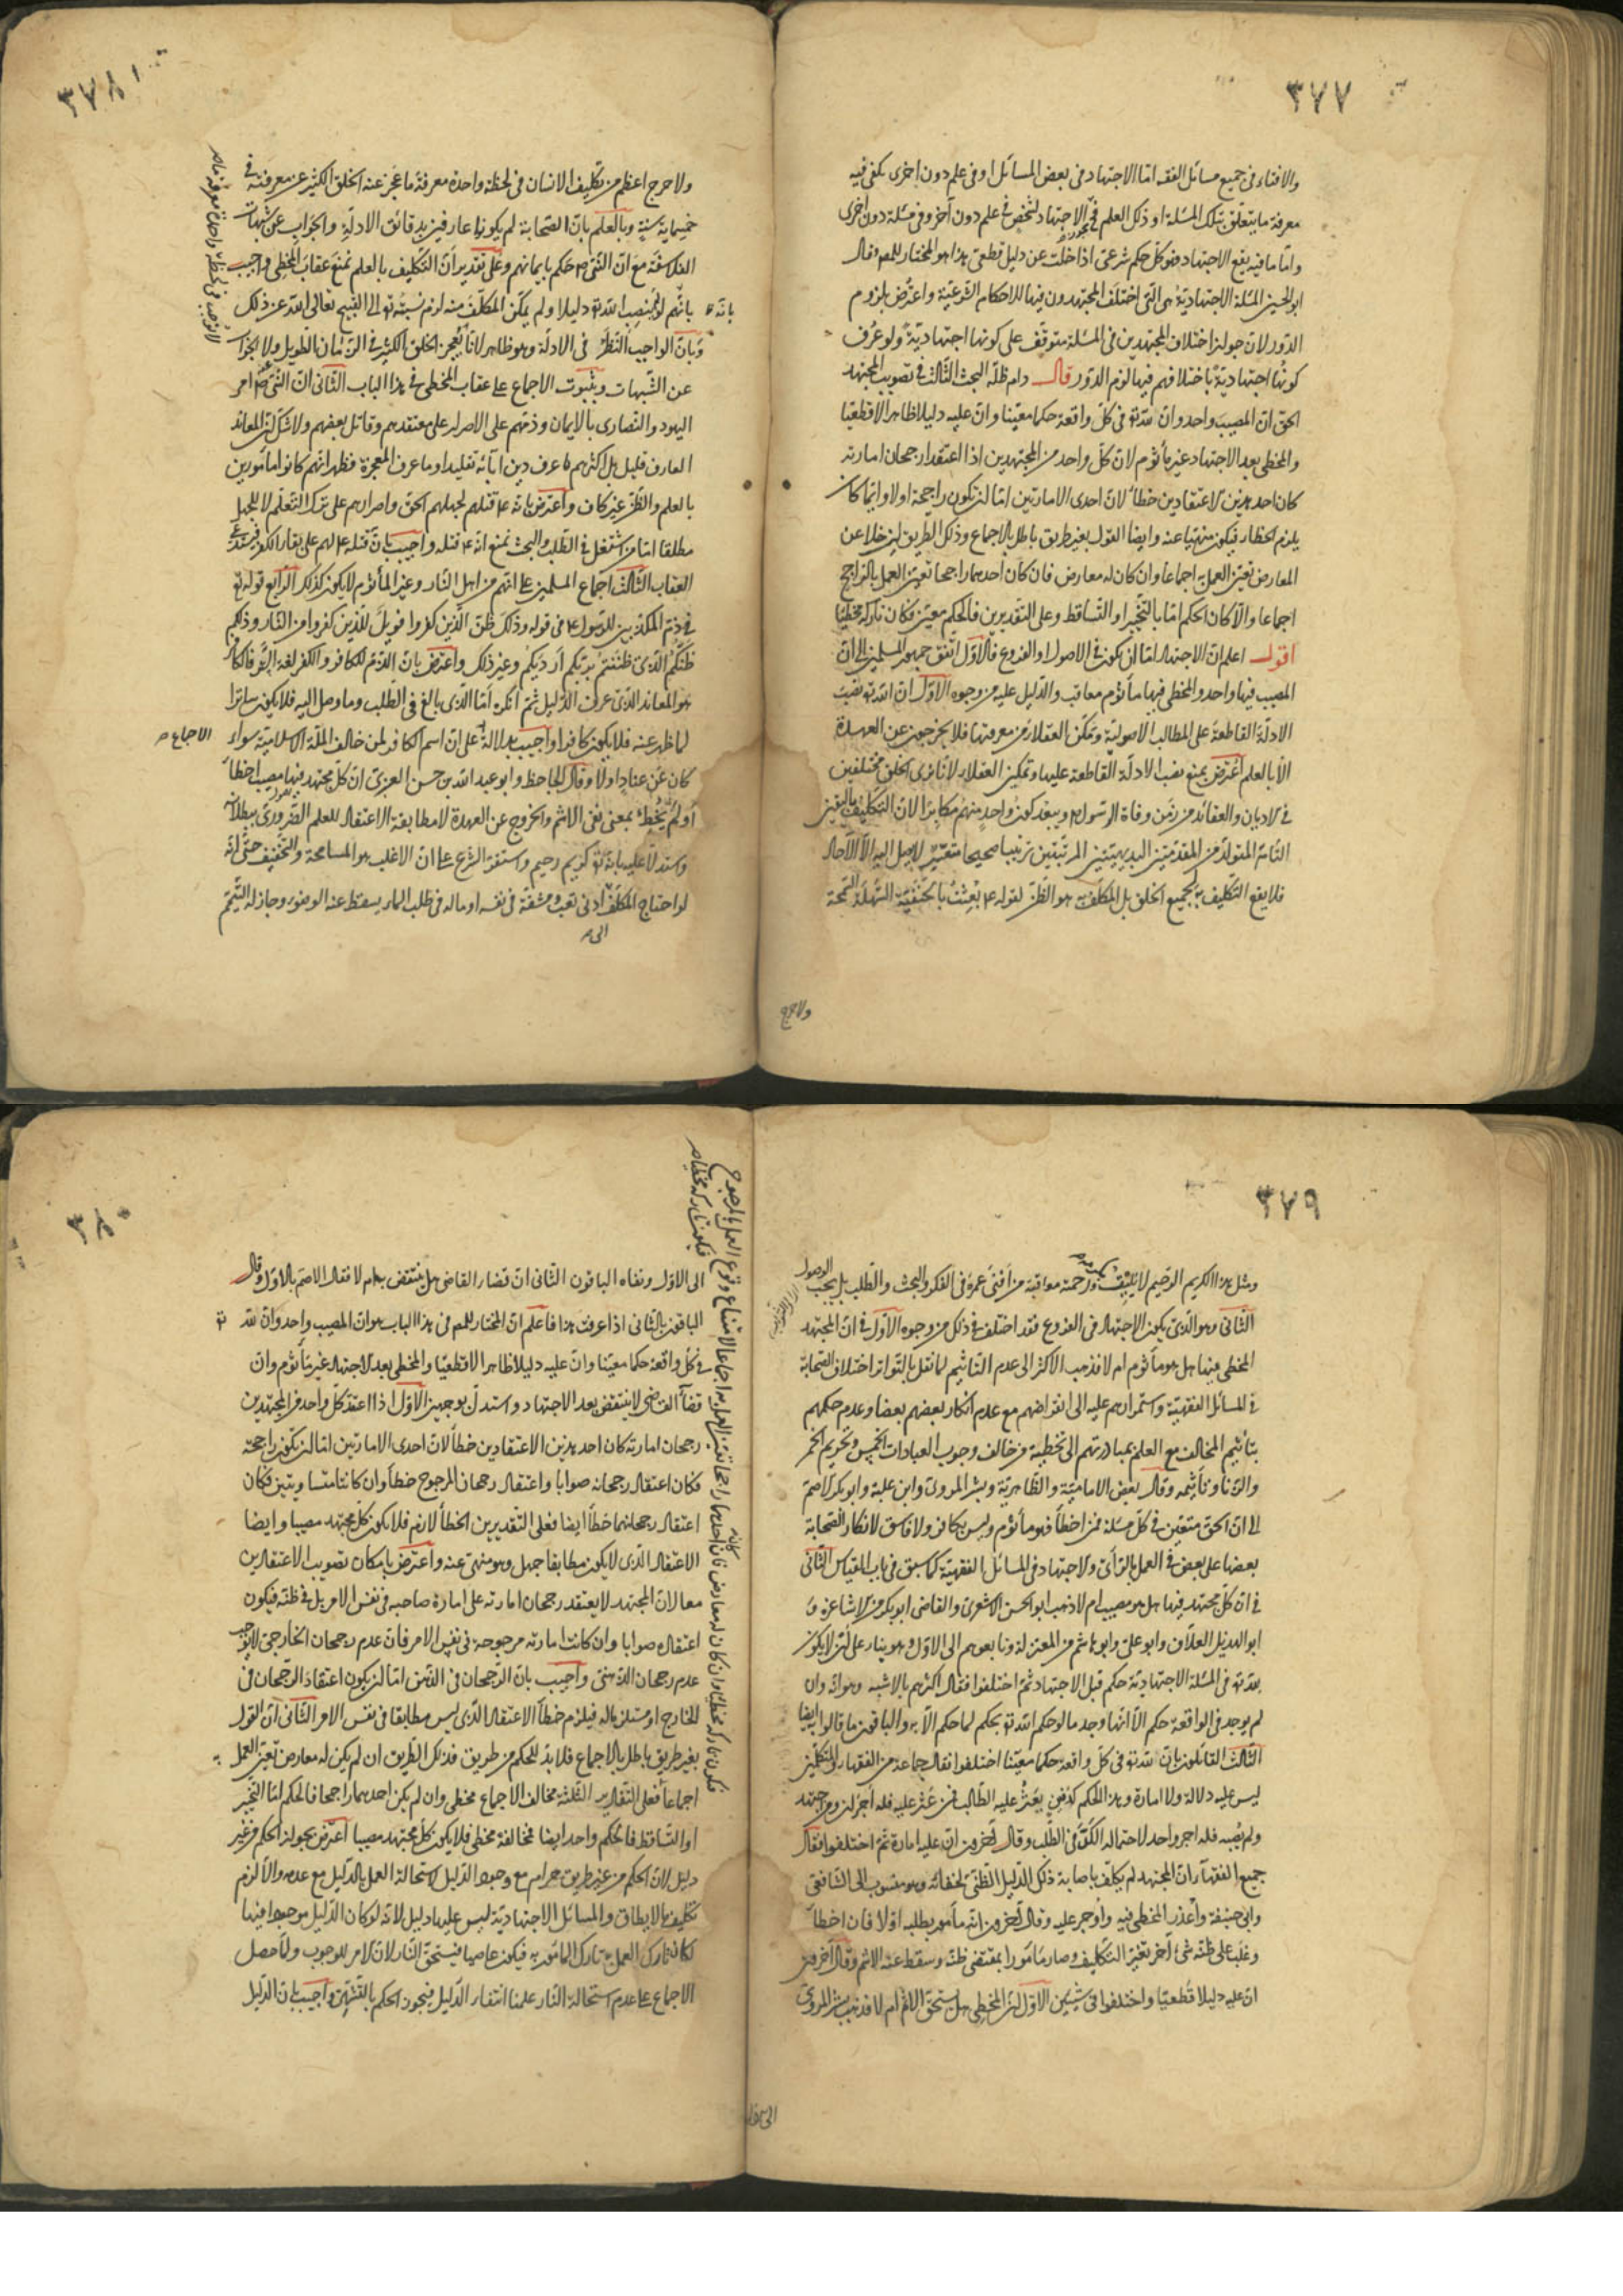 ٣٧٧
والافتاء فى جميع مسائل الفقه امّا الاجتهاد فى بعض المسائل او فى علم دون اخرى يكفى فيه
معرفة ما يتعلّق بتلك المسئلة او ذلك العلم فيجوز الاجتهاد لشخص فى علم دون آخر وفى مسئلة دون اخرى
وامّا ما فيه يقع الاجتهاد فهو كلّ حكم شرعى اذا خلت عن دليل قطعى هذا هو المختار للمص وقال
ابو الحسين المسئلة الاجتهاديّة هى التى اختلف المجتهدون فيها للاحكام الشرعيّة واعترض بلزوم
الدّور لان جواز اختلاف المجتهدين فى المسئلة متوقّف على كونها اجتهاديّة ولو عُرف
كونُها اجتهاديّةً باختلافهم فيها لزم الدّور قال دام ظلّه البحث الثّالث فى تصويب المجتهد
الحق انّ المصيب واحد وان لله تعالى فى كلّ واقعة حكما معيّنا وان عليه دليلا ظاهرا لا قطعيّا
والمخطى بعد الاجتهاد غير مأثوم لان كلّ واحد من المجتهدين اذا اعتقد رجحان امارته
كان احد هذين الاعتقادين خطأ لان احدى الامارتين امّا ان تكون راجحة اولا وايّما كان
يلزم الخطا فيكون منهيّا عنه وايضا القول بغير طريق باطل بالاجماع وذلك الطريق ان خلا عن
المعارض تعيّن العمل به اجماعا وان كان له معارض فان كان احدهما راجحا تعيّن العمل بالراجح
اجماعا والّا كان الحكم امّا بالتّخيير او التّساقط وعلى التقديرين فالحكم معيّن فكان تاركه مخطئا
اقول اعلم انّ الاجتهاد امّا ان يكون فى الاصول او الفروع فالاوّل اتّفق جمهور المسلمين الى انّ
المصيب فيها واحد والمخطى فيها مأثوم معاقب والدّليل عليه من وجوه الاوّل انّ الله تعالى نصب
الادلّة القاطعة على المطالب الاصوليّة ومكّن العقلاء من معرفتها فلا يخرجون عن العهدة
الّا بالعلم اعترض بمنع نصب الادلّة القاطعة عليها وتمكين العقلاء لانّا نرى الخلق مختلفين
فى الاديان والعقائد من زمن وفاة الرّسول ص ويبعد كون واحد منهم مكابرا لان التكليف باليقين
التّام المتولّد من المقدّمتين البديهيّتين المرتّبتين ترتيبا صحيحا متعسّر لا يصل اليه الّا الآحاد
فلا يقع التّكليف به لجميع الخلق بل المكلّف به هو الظّن لقوله ع بُعِثتُ بالحنفيّة السّهلة السّمحة
ولا حرج
٣٧٨
ولا حرج اعظم من تكليف الانسان فى لحظة واحدة معرفة ما عجز عنه الخلق الكثير عن معرفته فى
خمسماية سنة وبالعلم بانّ الصّحابة لم يكونوا عارفين بدقائق الادلّة والجواب عن شبهات
الفلاسفة مع انّ النّبى ص حكم بايمانهم وعلى تقدير انّ التّكليف بالعلم نمنع عقاب المخطى واجيب
بانّهم لو لم ينصب الله تعالى دليلا ولم يمكّن المكلّف منه لزم نسبته تعالى الى القبيح تعالى الله عن ذلك
وبان الواجب النّظر فى الادلّة وهو ظاهر لانّا نعجز الخلق الكثير فى الزّمان الطويل ولا الجواب
عن الشّبهات وبثبوت الاجماع على عقاب المخطى فى هذا الباب الثّانى انّ النّبى ص امر
اليهود والنّصارى بالايمان وذمّهم على الاصرار على معتقدهم وقاتل بعضهم ولا شك انّ المعاند
العارف قليل بل اكثرهم ما عرف دين ابائه تقليدا وما عرف المعجزة فظهر انهم كانوا مأمورين
بالعلم والظّن غير كاف واعترض بانّه ع قتلهم لجهلهم الحق واصرارهم على ترك التّعلّم لا للجهل
مطلقا امّا من اشتغل فى الطّلب والبحث نمنع انّه ع قتله واجيب بان قتله ع لهم على بقاء الكفر
العقاب الثّالث اجماع المسلمين على انّهم من اهل النّار وغير المأثوم لا يكون كذلك الرّابع قوله تعالى
فى ذمّ المكذّبين للرّسول ع فى قوله وذلك ظنّ الّذين كفروا فويل للّذين كفروا من النّار وذلكم
ظنّكم الّذى ظننتم بربّكم ارديكم وغير ذلك واعترض بان الذّم للكافر والكفر لغة السّتر فالكافر
هو المعاند الّذى عرف الدّليل ثمّ انكره امّا الّذى بالغ فى الطلب وما وصل اليه فلا يكون ساترا
لما ظهر عنه فلا يكون كافرا واجيب بدلالة على انّ اسم الكافر لمن خالف الملّة الاسلاميّة سواء
كان عن عناد اولا وقال الجاحظ وابو عبد الله بن حسن العزى انّ كلّ مجتهد فيها مصيب اخطأ
او لم يُخطِ بمعنى نفى الاثم والخروج عن العهدة لا مطابقة الاعتقاد للعلم الضّرورى ببطلانه
واستدلّا عليه بانّه تعالى كريم رحيم واستقراء الشّرع على انّ الاغلب هو المسامحة والتّخفيف حتّى انّه
لو احتاج المكلّف ادنى تعب ومشقّة فى نفسه او ماله فى طلب الماء يسقط عنه الوضوء وجاز له التّيمّم
الاجماع
٣٧٩
ومثل هذا الكريم الرّحيم لا يليق بكرمه ورحمته معاقبة من افنى عمره فى الفكر والبحث والطلب بل يجب
الثّانى وهو الّذى يكون الاجتهاد فى الفروع فقد اختلف فى ذلك من وجوه الاوّل فى انّ المجتهد
المخطى فيها هل هو مأثوم ام لا فذهب الاكثر الى عدم التّاثيم لما نقل بالتّواتر اختلاف الصّحابة
فى المسائل الفقهيّة واستمرارهم عليه الى انقراضهم مع عدم انكار بعضهم بعضا وعدم حكمهم
بتأثيم المخالف مع العلم بمبادرتهم الى تخطية من خالف وجوب العبادات الخمس وتحريم الخمر
والزّنا وتأثيمه وقال بعض الاماميّة والظّاهريّة وبشر المروى وابن علية وابو بكر الاصمّ
الى انّ الحق متعيّن فى كلّ مسئلة فمن اخطأ فهو مأثوم وليس بكافر ولا فاسق لانكار الصّحابة
بعضها على بعض فى العمل بالرّأى والاجتهاد فى المسائل الفقهيّة كما سبق فى باب القياس الثّانى
فى ان كلّ مجتهد فيها هل هو مصيب ام لا ذهب ابو الحسن الاشعرى والقاضى ابو بكر من الاشاعرة و
ابو الهذيل العلّاف وابو على وابو هاشم من المعتزلة وتابعوهم الى الاوّل وهو بناء على ان لا يكون
لله تعالى فى المسئلة الاجتهاديّة حكم قبل الاجتهاد ثمّ اختلفوا فقال اكثرهم بالاشبه وهو انّه وان
لم يوجد فى الواقعة حكم الّا انّها وجد ما لو حكم الله تعالى بحكم لما حكم الّا به والباقون ما قالوا ايضا
الثّالث القائلون بان لله تعالى فى كلّ واقعة حكما معيّنا اختلفوا فقال جماعة من الفقهاء والمتكلّمين
ليس عليه دلالة ولا امارة وهذا الحكم كدفين يعثر عليه الطّالب فمن عثر عليه فله اجران ومن اجتهد
ولم يصبه فله اجر واحد لاحتماله الكدّ فى الطّلب وقال آخرون انّ عليه امارة ثمّ اختلفوا فقال
جميع الفقهاء انّ المجتهد لم يكلّف باصابة ذلك الدّليل الظّنّى لخفائه وهو منسوب الى الشّافعى
وابى حنيفة واُعذر المخطى فيه واُوجر عليه وقال آخرون انّه مأمور بطلبه اوّلا فان اخطأ
وغلب على ظنّه شئ آخر تغيّر التّكليف وصار مأمورا بمقتضى ظنّه وسقط عنه الاثم وقال آخرون
انّ عليه دليلا قطعيّا واختلفوا فى شيئين الاوّل انّ المخطى هل يستحق الاثم ام لا فذهب بشر المروى
٣٨٠
الى الاوّل ونفاه الباقون الثّانى انّ قضاء القاضى هل ينتقض به ام لا فقال الاصمّ بالاوّل وقال
الباقون بالثّانى اذا عرفت هذا فاعلم انّ المختار للمص فى هذا الباب هو انّ المصيب واحد وانّ لله تعالى
فى كلّ واقعة حكما معيّنا وانّ عليه دليلا ظاهرا لا قطعيّا والمخطى بعد الاجتهاد غير مأثوم وان
قضاء القاضى لا ينتقض بعد الاجتهاد واستدلّ بوجهين الاوّل اذا اعتقد كلّ واحد من المجتهدين
رجحان امارته كان احد هذين الاعتقادين خطأ لان احدى الامارتين امّا ان تكون راجحة
فكان اعتقاد رجحانه صوابا واعتقاد رجحان المرجوح خطأ وان كانتا متساويتين فكان
اعتقاد رجحانهما خطأ ايضا فعلى التّقديرين الخطأ لازم فلا يكون كلّ مجتهد مصيبا وايضا
الاعتقاد الّذى لا يكون مطابقا جهل وهو منهى عنه واعترض بامكان تصويب الاعتقادين
معا لانّ المجتهد لا يعتقد رجحان امارته على امارة صاحبه فى نفس الامر بل فى ظنّه فيكون
اعتقاده صوابا وان كانت امارته مرجوحة فى نفس الامر فان عدم رجحان الخارجى لا يوجب
عدم رجحان الذّهنى واجيب بانّ الرّجحان فى الذّهن امّا ان يكون اعتقاد الرّجحان فى
الخارج او مستلزما له فيلزم خطأ الاعتقاد الّذى ليس مطابقا فى نفس الامر الثّانى انّ القول
بغير طريق باطل بالاجماع فلا بدّ للحكم من طريق فذلك الطّريق ان لم يكن له معارض تعيّن العمل به
اجماعا فعلى التّقادير الثّلثة مخالف الاجماع مخطى وان لم يكن احدهما راجحا فالحكم امّا التخيير
او التّساقط فالحكم واحد ايضا فمخالفة مخطى فلا يكون كلّ مجتهد مصيبا اعترض بجواز الحكم من غير
دليل لانّ الحكم من غير طريق حرام مع وجود الدّليل لاستحالة العمل بالدّليل مع عدمه والّا لزم
تكليف ما لا يطاق والمسائل الاجتهاديّة ليس عليها دليل لانّه لو كان الدّليل موجودا فيها
لكان تارك العمل به تارك المأمور به فيكون عاصيا فيستحق النّار لان الامر للوجوب ولمّا حصل
الاجماع على عدم استحالة النّار علمنا انتفاء الدّليل فيجوز الحكم بالتّشهّى واجيب بان الدّليل